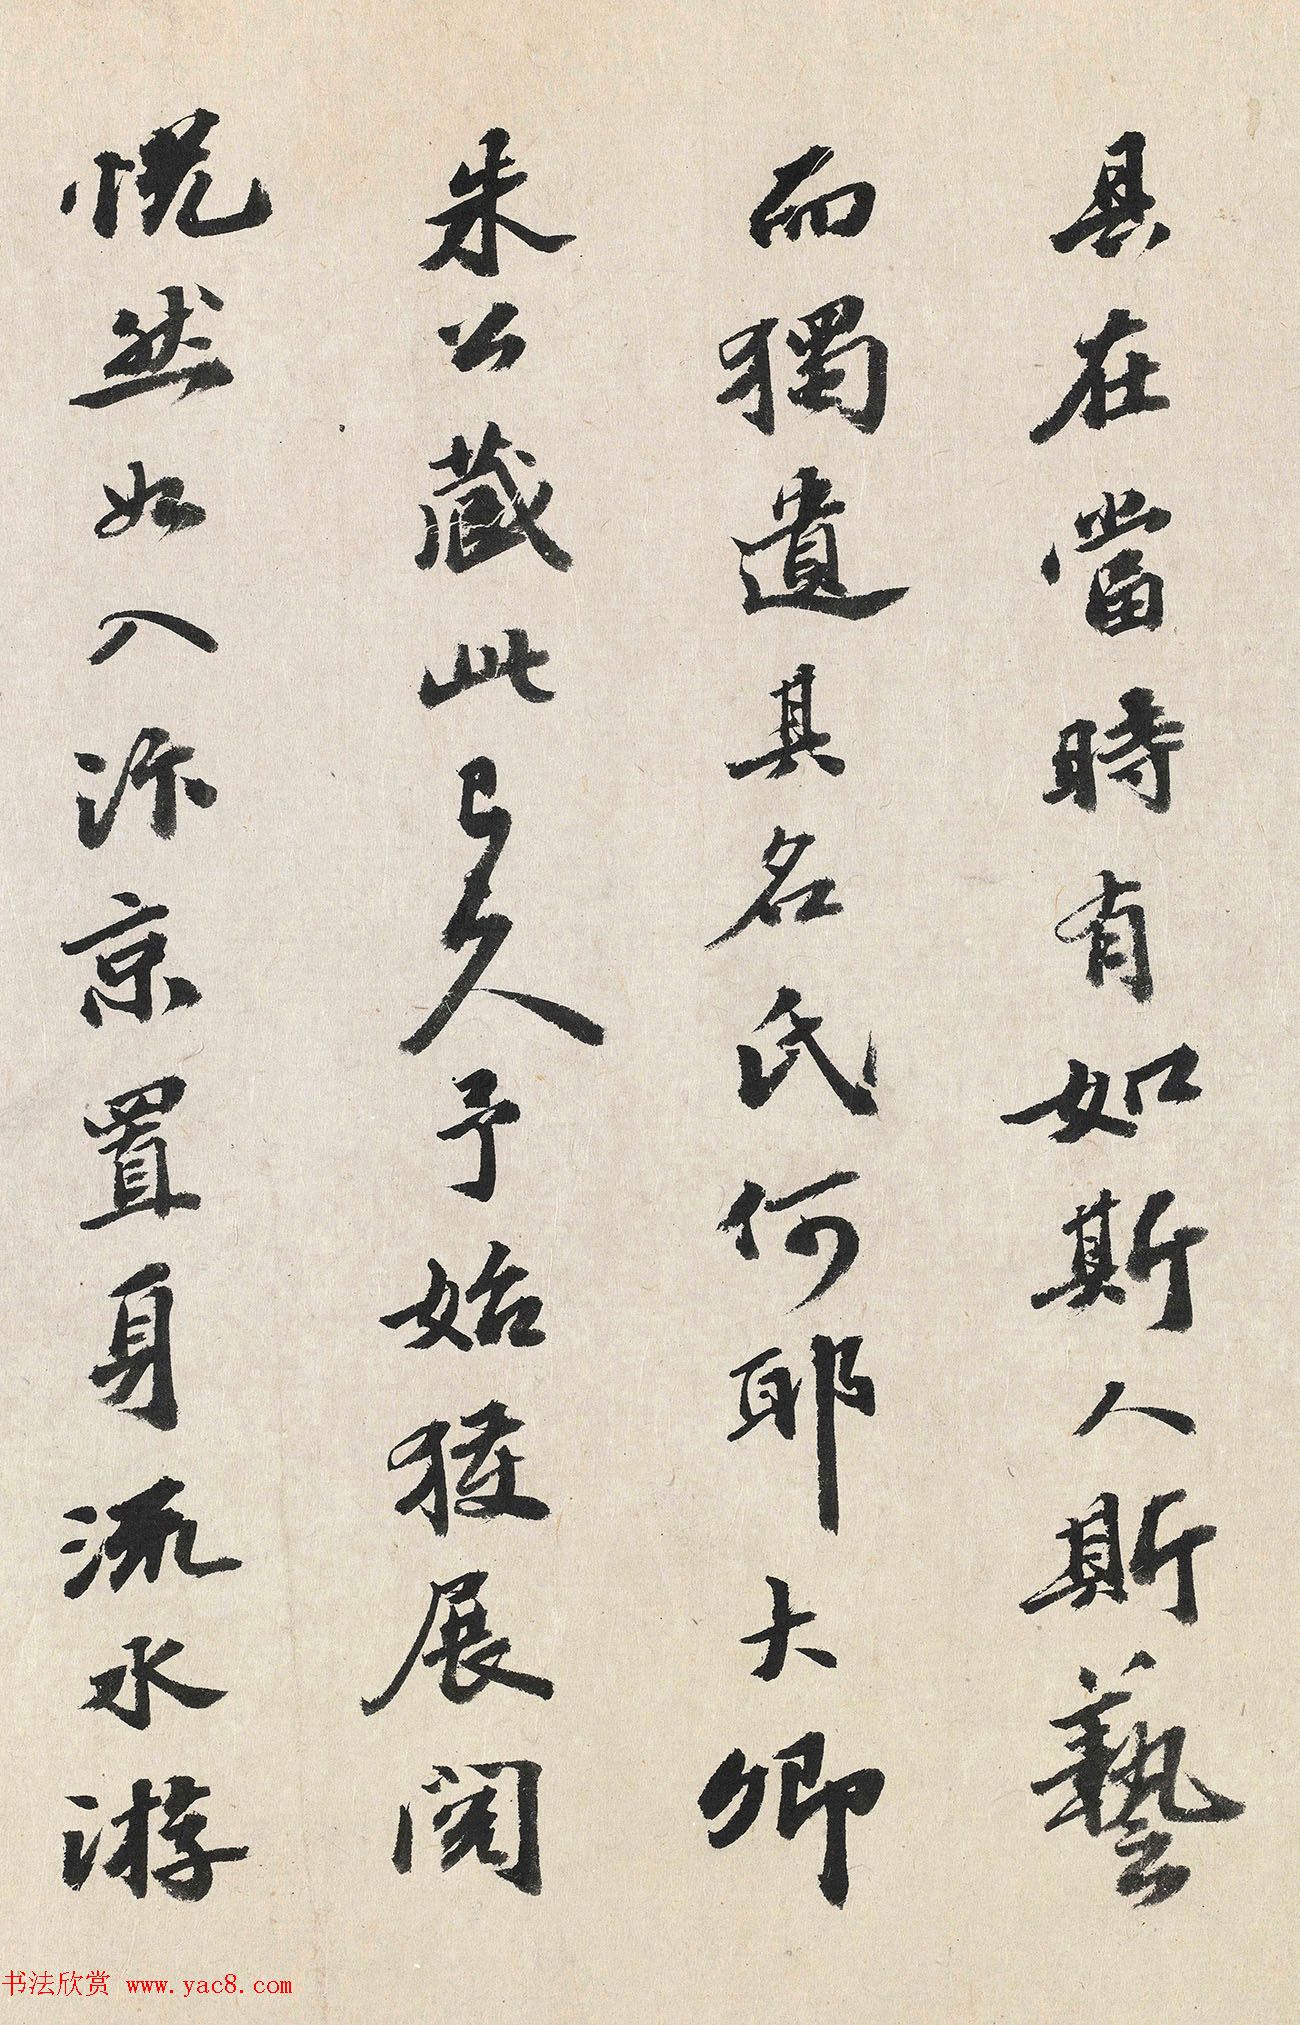 具在當時有如斯人斯藝
而獨遺其名氏何耶大卿
朱公藏此已久予始獲展閱
恍然如入汴京置身流水游
书法欣赏 www.yac8.com